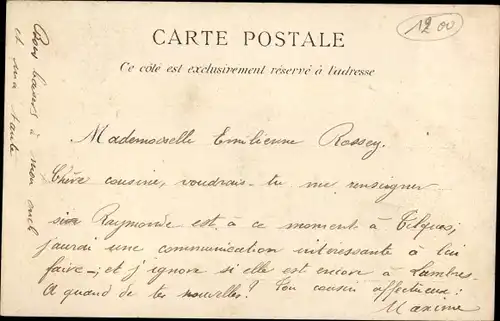 12 00
CARTE POSTALE
Ce côté est exclusivement réservé à l'adresse
Bons baisers à mon oncle
et ma tante
Mademoiselle Emilienne Rossey.
Chère cousine, voudrais-tu me renseigner
si Raymonde est à ce moment à Tilques,
j'aurai une communication intéressante à lui
faire — et j'ignore si elle est encore à Lambres.
A quand de tes nouvelles? Ton cousin affectueux:
Maxime